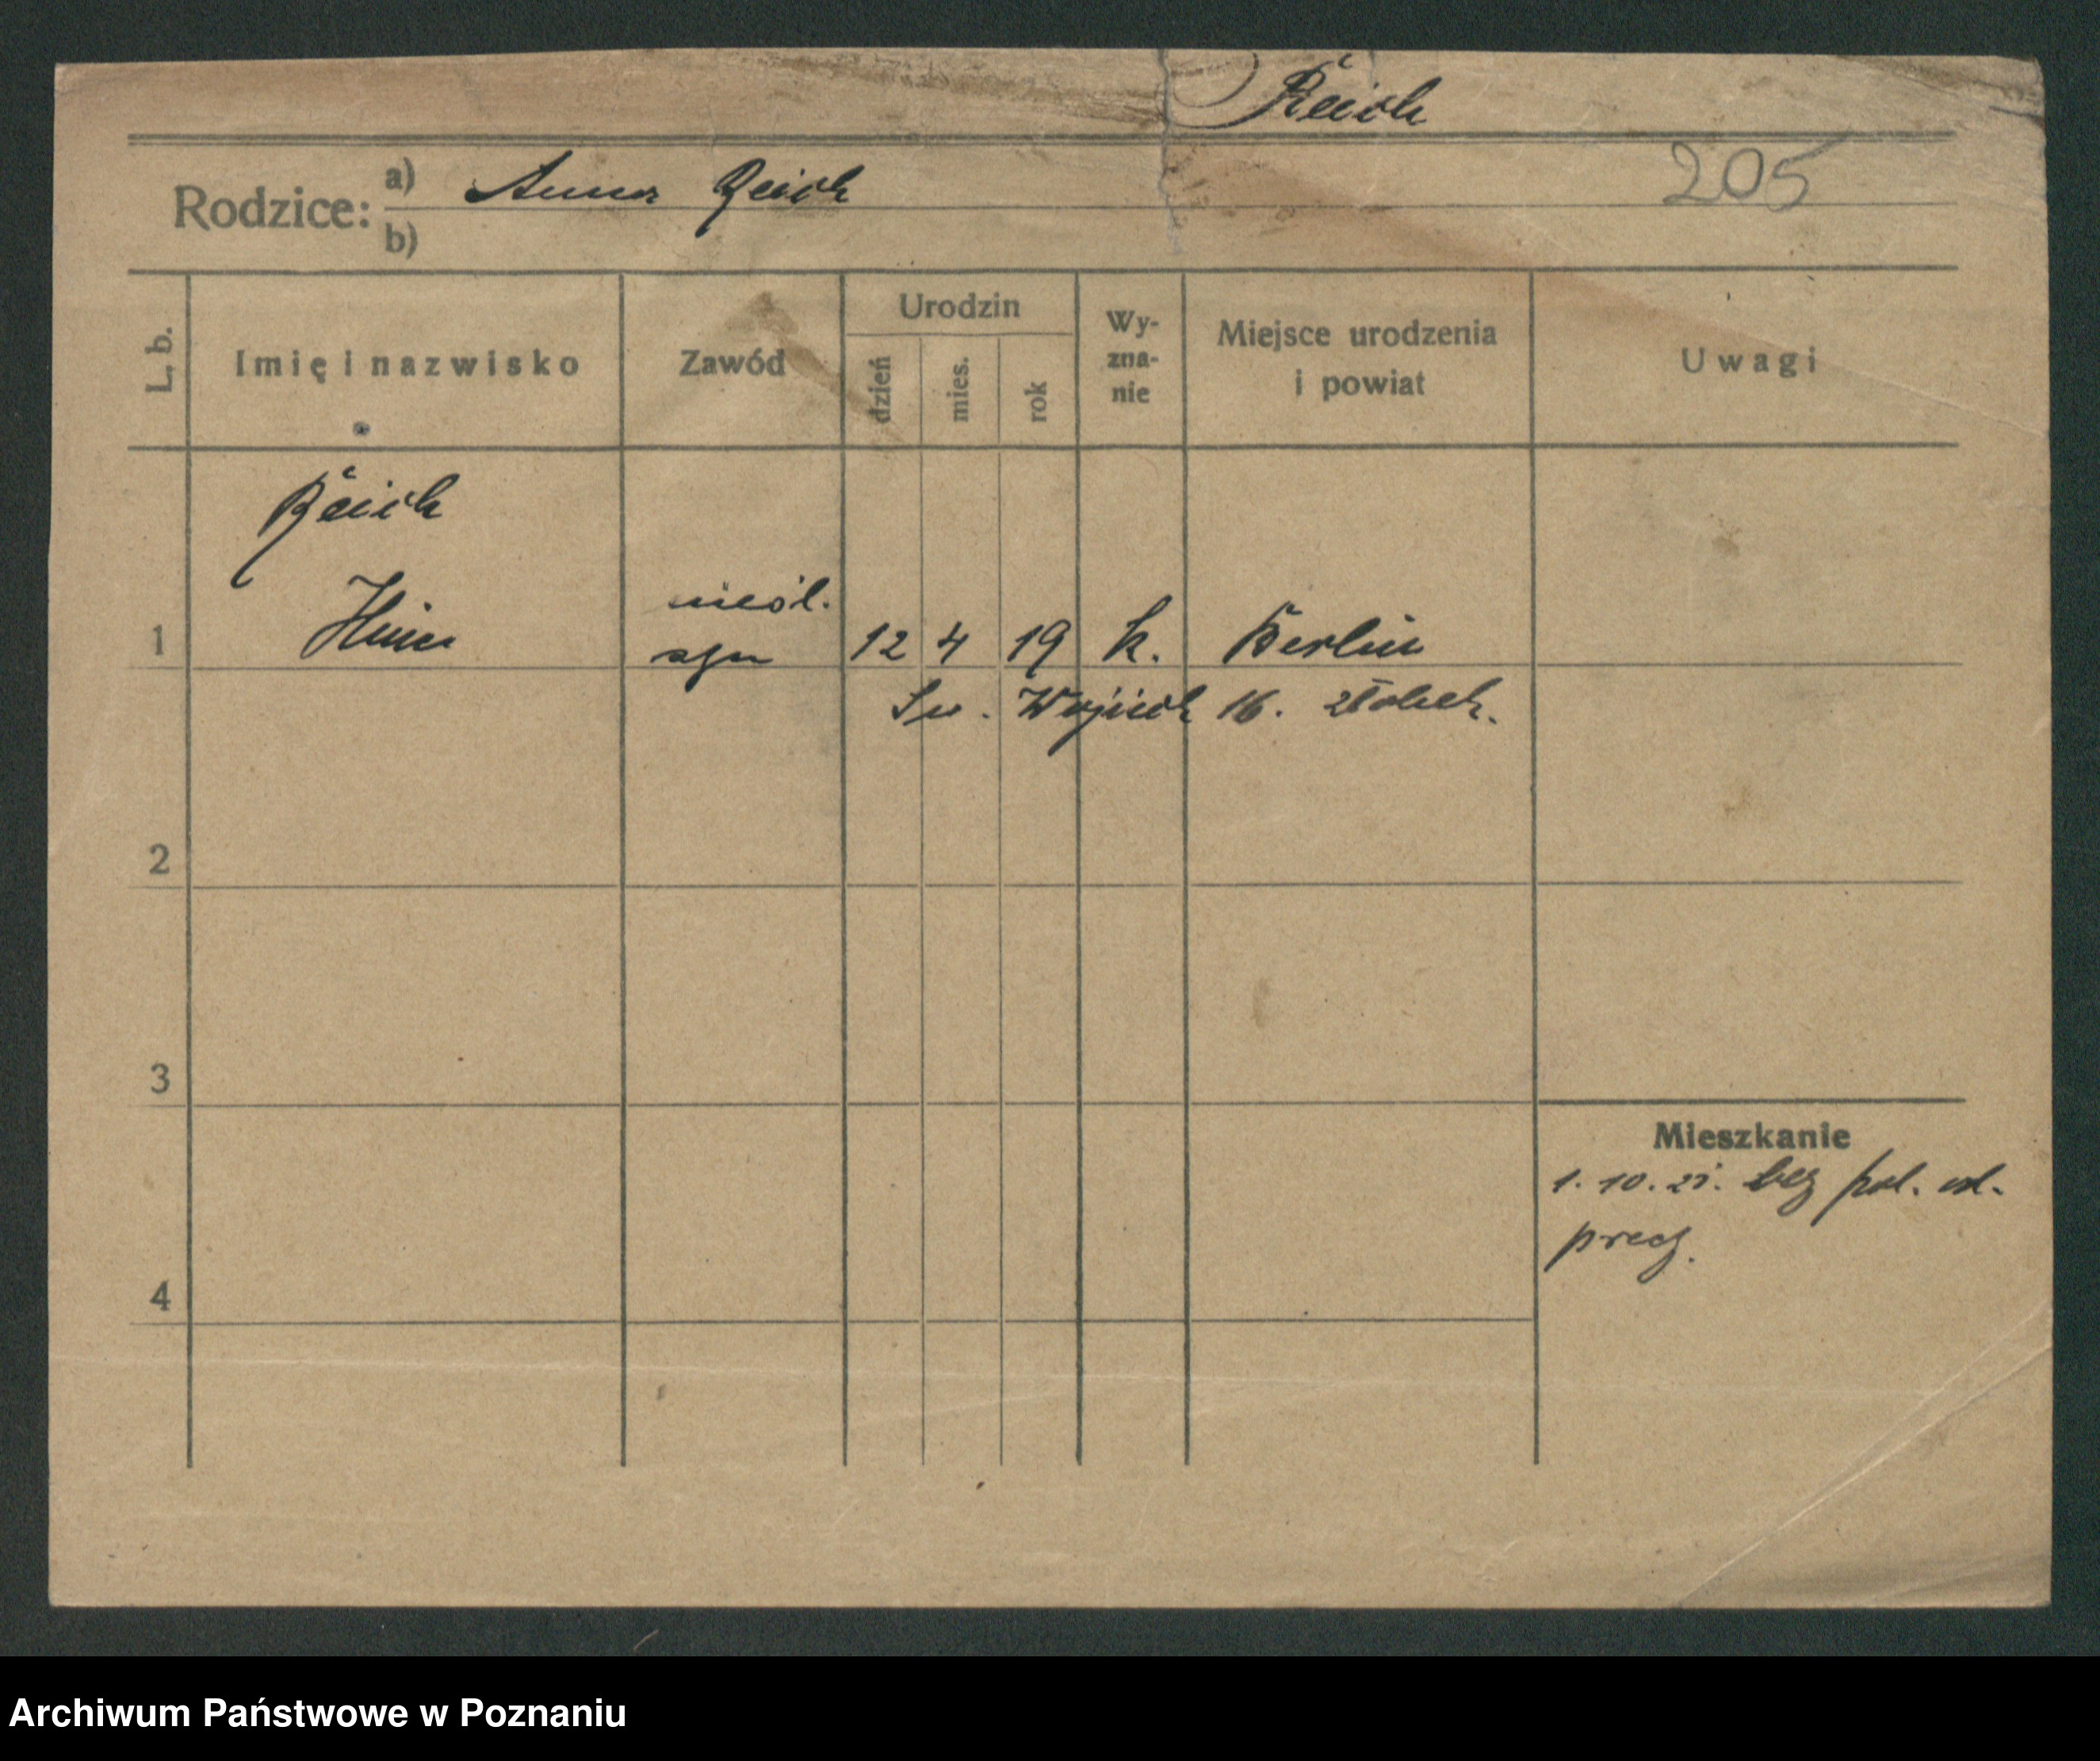 Reich
Rodzice: a) Anna Reich 205
b)
L. b. Imię i nazwisko Zawód Urodzin dzień mies. rok Wy-zna-nie Miejsce urodzenia i powiat Uwagi
Reich
nieśl.
1 syn 12 4 19 k. Berlin
Św. Wojciech 16. żłobek.
2
3
Mieszkanie
1. 10. 21. bez pol. od.
4
Archiwum Państwowe w Poznaniu